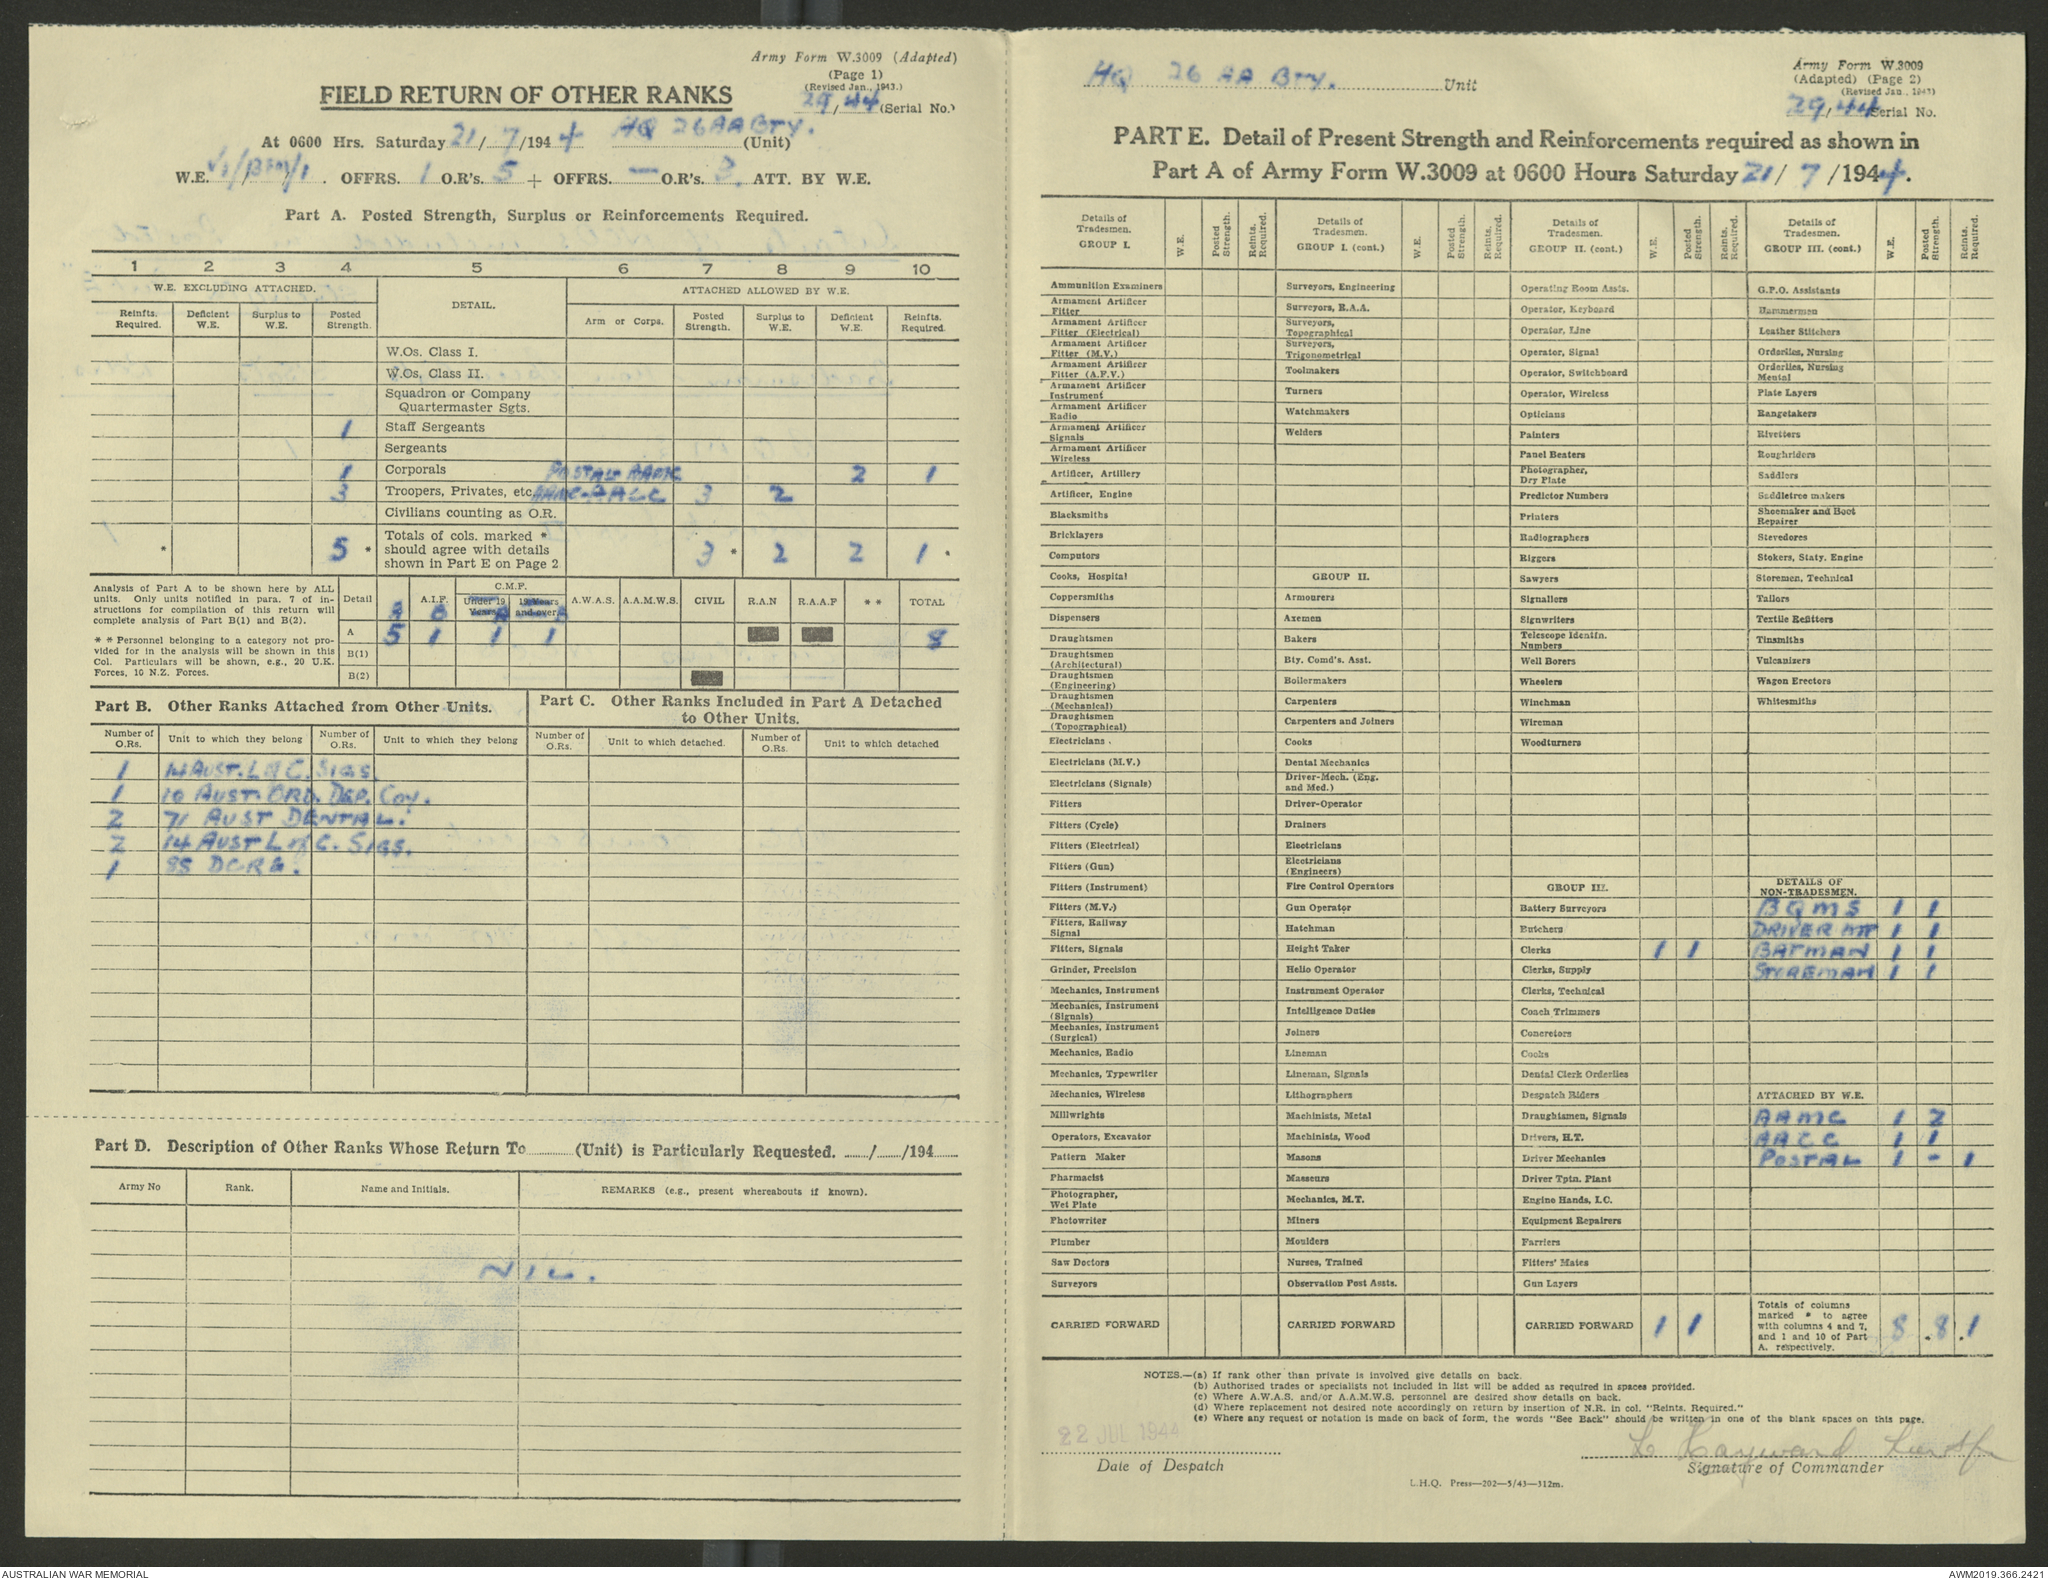 Army Form W.3009 (Adapted)
(Page 1)
(Revised Jan., 1943.)
29/44 (Serial No.)
FIELD RETURN OF OTHER RANKS
At 0600 Hrs. Saturday 21/7/1944 HQ 26 AA BTY. (Unit)
W.E. OFFRS. 1 O.R's. 5 + OFFRS. — O.R's. 3. ATT. BY W.E.
Part A. Posted Strength, Surplus or Reinforcements Required.
1 2 3 4 5 6 7 8 9 10
W.E. EXCLUDING ATTACHED. DETAIL. ATTACHED ALLOWED BY W.E.
Reinfts. Required. Deficient W.E. Surplus to W.E. Posted Strength. Arm or Corps. Posted Strength. Surplus to W.E. Deficient W.E. Reinfts. Required.
W.Os. Class I.
W.Os. Class II.
Squadron or Company
Quartermaster Sgts.
1 Staff Sergeants
Sergeants
1 Corporals POSTAL AAMC 2 1
3 Troopers, Privates, etc. AAMC-AACC 3 2
Civilians counting as O.R.
* 5 * Totals of cols. marked * should agree with details shown in Part E on Page 2 3 * 2 2 1 *
Analysis of Part A to be shown here by ALL
units. Only units notified in para. 7 of in-
structions for compilation of this return will
complete analysis of Part B(1) and B(2).
* * Personnel belonging to a category not pro-
vided for in the analysis will be shown in this
Col. Particulars will be shown, e.g., 20 U.K.
Forces, 10 N.Z. Forces.
Detail A.I.F. C.M.F. Under 19 Years 19 Years and over. A.W.A.S. A.A.M.W.S. CIVIL R.A.N R.A.A.F * * TOTAL
A 5 1 1 1 8
B(1)
B(2)
Part B. Other Ranks Attached from Other Units.
Number of O.Rs. Unit to which they belong Number of O.Rs. Unit to which they belong
1 14 AUST. L of C. SIGS.
1 10 AUST. ORD. DEP. COY.
2 71 AUST DENTAL.
2 14 AUST L of C. SIGS.
1 85 DCRE.
Part C. Other Ranks Included in Part A Detached
to Other Units.
Number of O.Rs. Unit to which detached. Number of O.Rs. Unit to which detached
Part D. Description of Other Ranks Whose Return To ........ (Unit) is Particularly Requested. ....../....../194......
Army No Rank. Name and Initials. REMARKS (e.g., present whereabouts if known).
NIL.
HQ 26 AA BTY. Unit
Army Form W.3009
(Adapted) (Page 2)
(Revised Jan., 1943)
29/44 Serial No.
PART E. Detail of Present Strength and Reinforcements required as shown in
Part A of Army Form W.3009 at 0600 Hours Saturday 21/7/1944.
Details of Tradesmen. GROUP I. W.E. Posted Strength. Reints. Required.
Ammunition Examiners
Armament Artificer Fitter
Armament Artificer Fitter (Electrical)
Armament Artificer Fitter (M.V.)
Armament Artificer Fitter (A.F.V.)
Armament Artificer Instrument
Armament Artificer Radio
Armament Artificer Signals
Armament Artificer Wireless
Artificer, Artillery
Artificer, Engine
Blacksmiths
Bricklayers
Computors
Cooks, Hospital
Coppersmiths
Dispensers
Draughtsmen
Draughtsmen (Architectural)
Draughtsmen (Engineering)
Draughtsmen (Mechanical)
Draughtsmen (Topographical)
Electricians
Electricians (M.V.)
Electricians (Signals)
Fitters
Fitters (Cycle)
Fitters (Electrical)
Fitters (Gun)
Fitters (Instrument)
Fitters (M.V.)
Fitters, Railway Signal
Fitters, Signals
Grinder, Precision
Mechanics, Instrument
Mechanics, Instrument (Signals)
Mechanics, Instrument (Surgical)
Mechanics, Radio
Mechanics, Typewriter
Mechanics, Wireless
Millwrights
Operators, Excavator
Pattern Maker
Pharmacist
Photographer, Wet Plate
Photowriter
Plumber
Saw Doctors
Surveyors
CARRIED FORWARD
Details of Tradesmen. GROUP I. (cont.) W.E. Posted Strength. Reints. Required.
Surveyors, Engineering
Surveyors, R.A.A.
Surveyors, Topographical
Surveyors, Trigonometrical
Toolmakers
Turners
Watchmakers
Welders
GROUP II.
Armourers
Axemen
Bakers
Bty. Comd's. Asst.
Boilermakers
Carpenters
Carpenters and Joiners
Cooks
Dental Mechanics
Driver-Mech. (Eng. and Med.)
Driver-Operator
Drainers
Electricians
Electricians (Engineers)
Fire Control Operators
Gun Operator
Hatchman
Height Taker
Helio Operator
Instrument Operator
Intelligence Duties
Joiners
Lineman
Lineman, Signals
Lithographers
Machinists, Metal
Machinists, Wood
Masons
Masseurs
Mechanics, M.T.
Miners
Moulders
Nurses, Trained
Observation Post Assts.
CARRIED FORWARD
Details of Tradesmen. GROUP II. (cont.) W.E. Posted Strength. Reints. Required.
Operating Room Assts.
Operator, Keyboard
Operator, Line
Operator, Signal
Operator, Switchboard
Operator, Wireless
Opticians
Painters
Panel Beaters
Photographer, Dry Plate
Predictor Numbers
Printers
Radiographers
Riggers
Sawyers
Signallers
Signwriters
Telescope Identfn. Numbers
Well Borers
Wheelers
Winchman
Wireman
Woodturners
GROUP III.
Battery Surveyors
Butchers
Clerks 1 1
Clerks, Supply
Clerks, Technical
Coach Trimmers
Concretors
Cooks
Dental Clerk Orderlies
Despatch Riders
Draughtsmen, Signals
Drivers, H.T.
Driver Mechanics
Driver Tptn. Plant
Engine Hands, I.C.
Equipment Repairers
Farriers
Fitters' Mates
Gun Layers
CARRIED FORWARD 1 1
Details of Tradesmen. GROUP III. (cont.) W.E. Posted Strength. Reints. Required.
G.P.O. Assistants
Hammermen
Leather Stitchers
Orderlies, Nursing
Orderlies, Nursing Mental
Plate Layers
Rangetakers
Rivetters
Roughriders
Saddlers
Saddletree makers
Shoemaker and Boot Repairer
Stevedores
Stokers, Staty. Engine
Storemen, Technical
Tailors
Textile Refitters
Tinsmiths
Vulcanizers
Wagon Erectors
Whitesmiths
DETAILS OF NON-TRADESMEN.
BQMS 1 1
DRIVER MT 1 1
BATMAN 1 1
STOREMAN 1 1
ATTACHED BY W.E.
AAMC 1 2
AACC 1 1
POSTAL 1 - 1
Totals of columns marked * to agree with columns 4 and 7, and 1 and 10 of Part A. respectively. 8 . 8 . 1
NOTES.—(a) If rank other than private is involved give details on back.
(b) Authorised trades or specialists not included in list will be added as required in spaces provided.
(c) Where A.W.A.S. and/or A.A.M.W.S. personnel are desired show details on back.
(d) Where replacement not desired note accordingly on return by insertion of N.R. in col. "Reints. Required."
(e) Where any request or notation is made on back of form, the words "See Back" should be written in one of the blank spaces on this page.
22 JUL 1944
Date of Despatch
L Hayward
Signature of Commander
L.H.Q. Press—202—5/43—312m.
AUSTRALIAN WAR MEMORIAL
AWM2019.366.2421